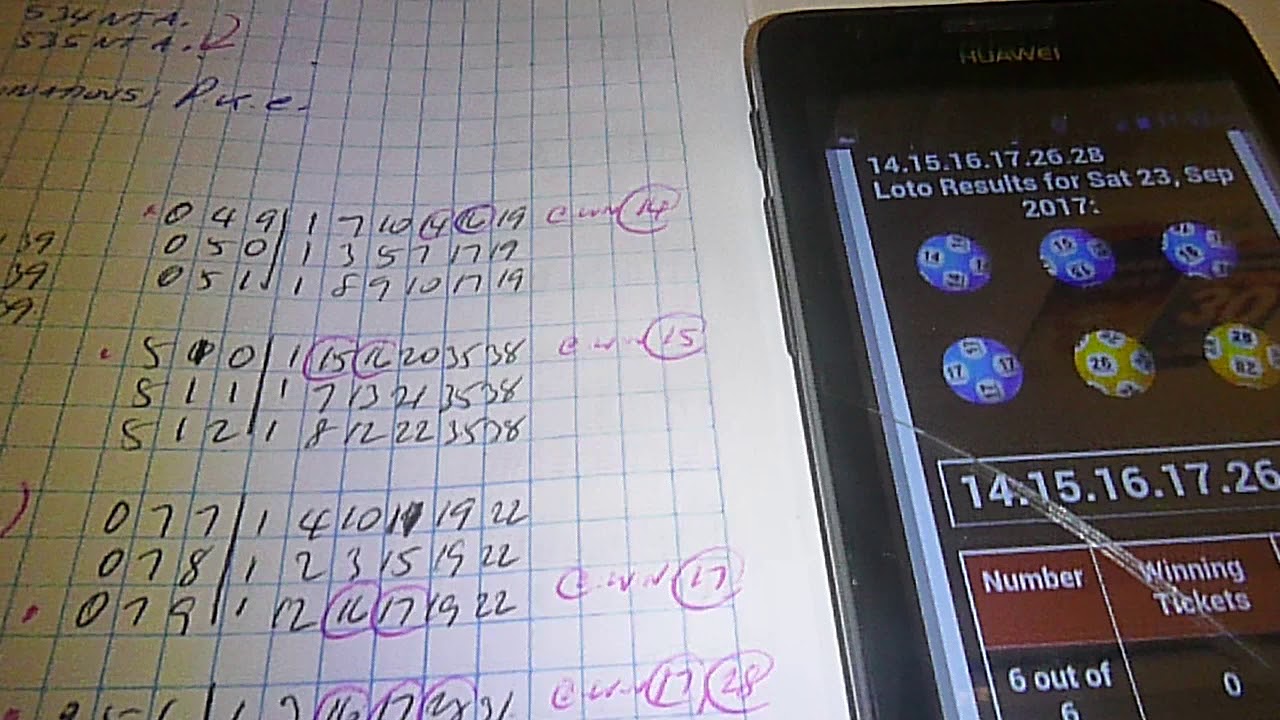 534 NTA.
535 NTA.
0 4 9 1 7 10 14 16 19 14
0 5 0 1 3 5 7 17 19
0 5 1 1 8 9 10 17 19
39
39
39.
5 0 1 15 16 20 35 38 15
5 1 1 1 7 13 21 35 38
5 1 2 1 8 12 22 35 38
0 7 7 1 4 10 19 22
0 7 8 1 2 3 15 19 22
0 7 9 1 12 16 17 19 22 17
17 28
HUAWEI
14.15.16.17.26.28
Loto Results for Sat 23, Sep
2017:
14
15
16
17 17
26
28 28
14.15.16.17.26
Number Winning
Tickets
6 out of
6
0